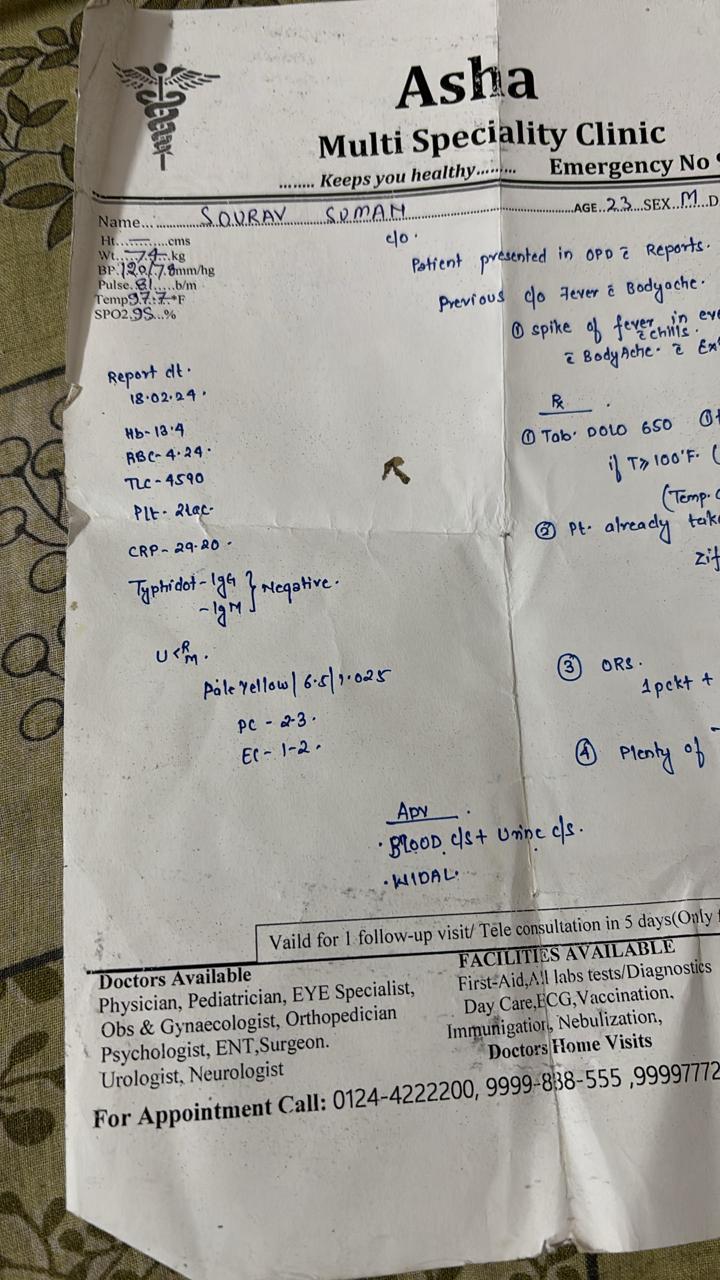 Asha
Multi Speciality Clinic
........ Keeps you healthy......... Emergency No
Name... SOURAV SUMAN AGE..23..SEX..M..D
Ht.......cms
Wt..74..kg
BP.120/78mm/hg
Pulse.81.....b/m
Temp97.7.°F
SPO2.98...%
c/o.
Patient presented in OPD c̄ Reports.
Previous c/o Fever c̄ Bodyache.
① spike of fever in eve
c̄ chills.
c̄ BodyAche. c̄
Report dt.
18.02.24.
Hb- 13.4
RBC- 4.24.
TLC- 4590
Plt- 2lac.
CRP- 29.20.
Typhidot- IgG } Negative.
- IgM
U<R/M.
Pale yellow/ 6.5/1.025
PC - 2-3.
EC- 1-2.
Rx
① Tab. DOLO 650
if T≥100°F. (
(Temp.
② Pt. already take
zif
③ ORS.
1pckt +
④ Plenty of
ADV
. BLOOD c/s + Urine c/s.
. WIDAL.
Vaild for 1 follow-up visit/ Tele consultation in 5 days(Only f
Doctors Available
Physician, Pediatrician, EYE Specialist,
Obs & Gynaecologist, Orthopedician
Psychologist, ENT,Surgeon.
Urologist, Neurologist
FACILITIES AVAILABLE
First-Aid,All labs tests/Diagnostics
Day Care,ECG,Vaccination,
Immunigation, Nebulization,
Doctors Home Visits
For Appointment Call: 0124-4222200, 9999-838-555 ,99997772